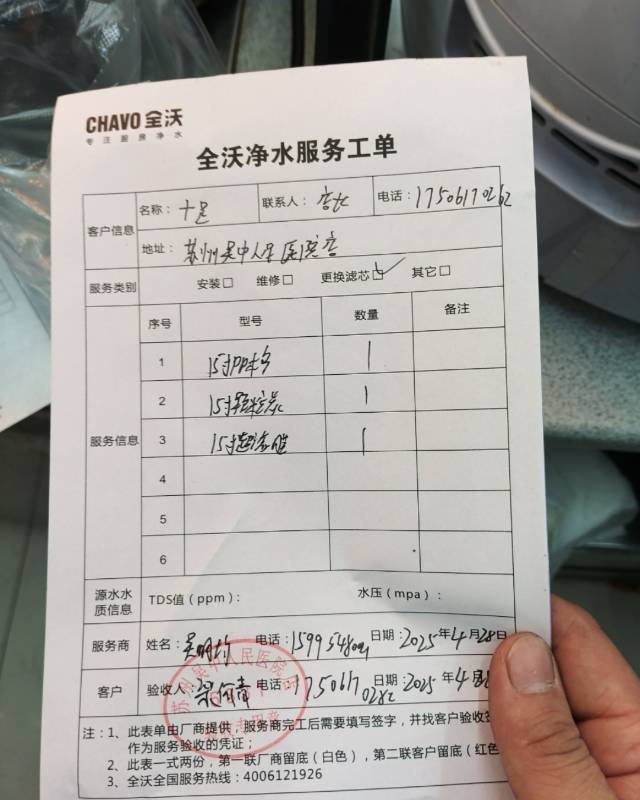 CHAVO 全沃
专注厨房净水
全沃净水服务工单
客户信息 名称：十足 联系人：店长 电话：17506170262
地址：苏州吴中人民医院店
服务类别 安装□ 维修□ 更换滤芯☑ 其它□
服务信息 序号 型号 数量 备注
1 15寸PP棉 1
2 15寸颗粒炭 1
3 15寸超滤膜 1
4
5
6
源水水质信息 TDS值（ppm）： 水压（mpa）：
服务商 姓名： 电话： 日期：2025年4月28日
客户 验收人： 电话：17506170282 日期：2025年4月
注：1、此表单由厂商提供，服务商完工后需要填写签字，并找客户验收签
作为服务验收的凭证；
2、此表一式两份，第一联厂商留底（白色），第二联客户留底（红色
3、全沃全国服务热线：4006121926